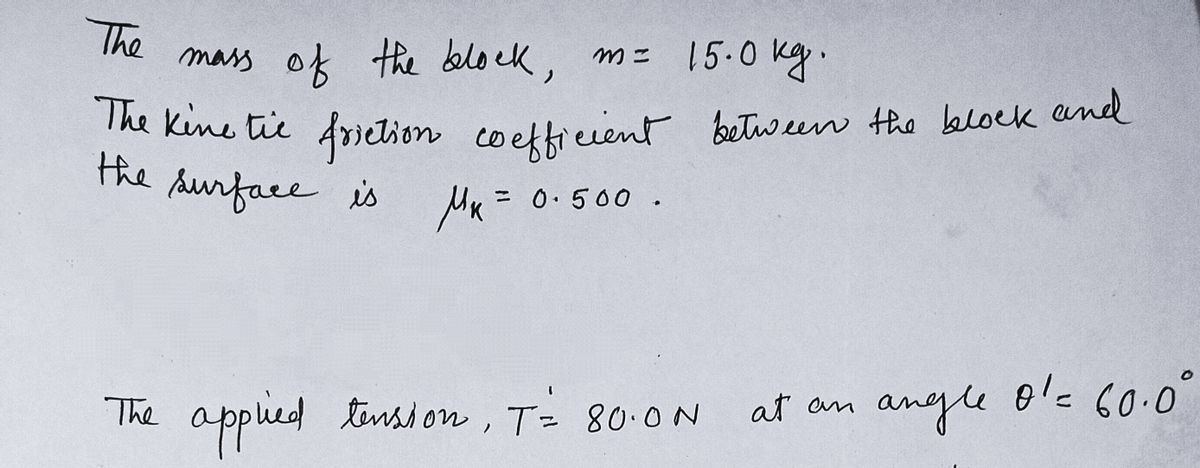 The mass of the block, m = 15.0 kg.
The kinetic friction coefficient between the block and
the surface is μK = 0.500.
The applied tension, T' = 80.0 N at an angle θ' = 60.0°